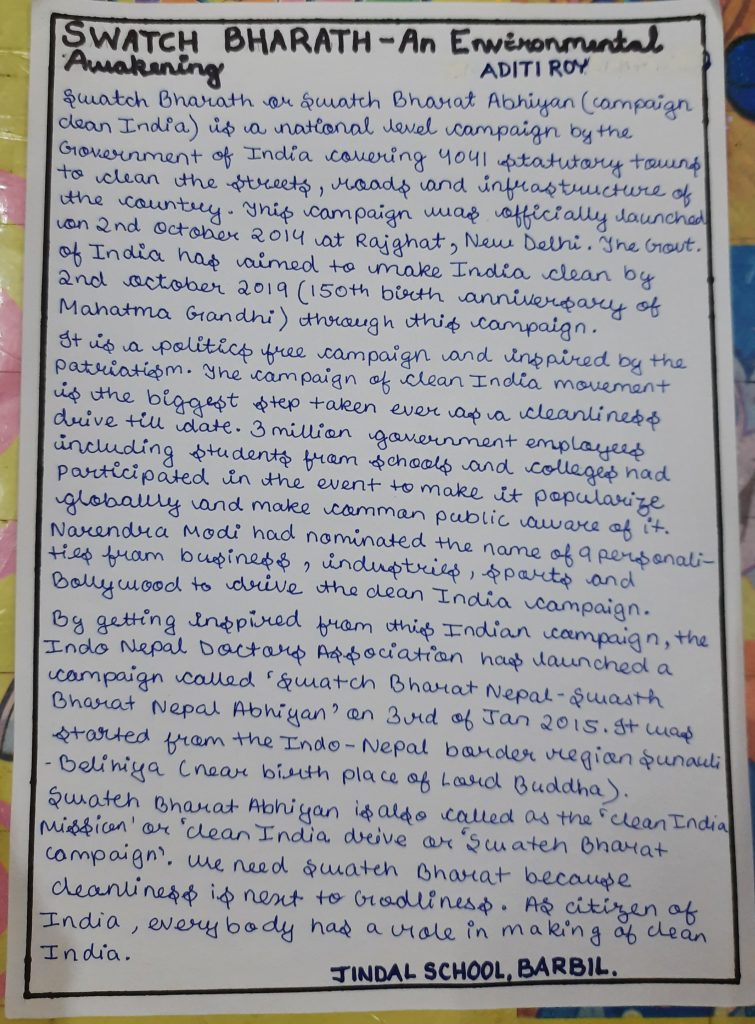 SWATCH BHARATH - An Environmental
Awakening
ADITI ROY
Swatch Bharath or Swatch Bharat Abhiyan (campaign
clean India) is a national level campaign by the
Government of India covering 4041 statutory towns
to clean the streets, roads and infrastructure of
the country. This campaign was officially launched
on 2nd October 2014 at Rajghat, New Delhi. The Govt.
of India has aimed to make India clean by
2nd october 2019 (150th birth anniversary of
Mahatma Gandhi) through this campaign.
It is a politics free campaign and inspired by the
patriatism. The campaign of clean India movement
is the biggest step taken ever as a cleanliness
drive till date. 3 million government employees
including students from schools and colleges had
participated in the event to make it popularize
globally and make comman public aware of it.
Narendra Modi had nominated the name of 9 personali-
ties from business, industries, sports and
Bollywood to drive the clean India campaign.
By getting inspired from this Indian campaign, the
Indo Nepal Doctors Association has launched a
campaign called 'Swatch Bharat Nepal-Swasth
Bharat Nepal Abhiyan' on 3rd of Jan 2015. It was
started from the Indo-Nepal border region Sunauli
- Belihiya (near birth place of Lord Buddha).
Swatch Bharat Abhiyan is also called as the 'Clean India
Mission' or 'clean India drive or 'Swatch Bharat
campaign'. We need Swatch Bharat because
cleanliness is next to Godliness. As citizen of
India, everybody has a role in making of clean
India.
JINDAL SCHOOL, BARBIL.